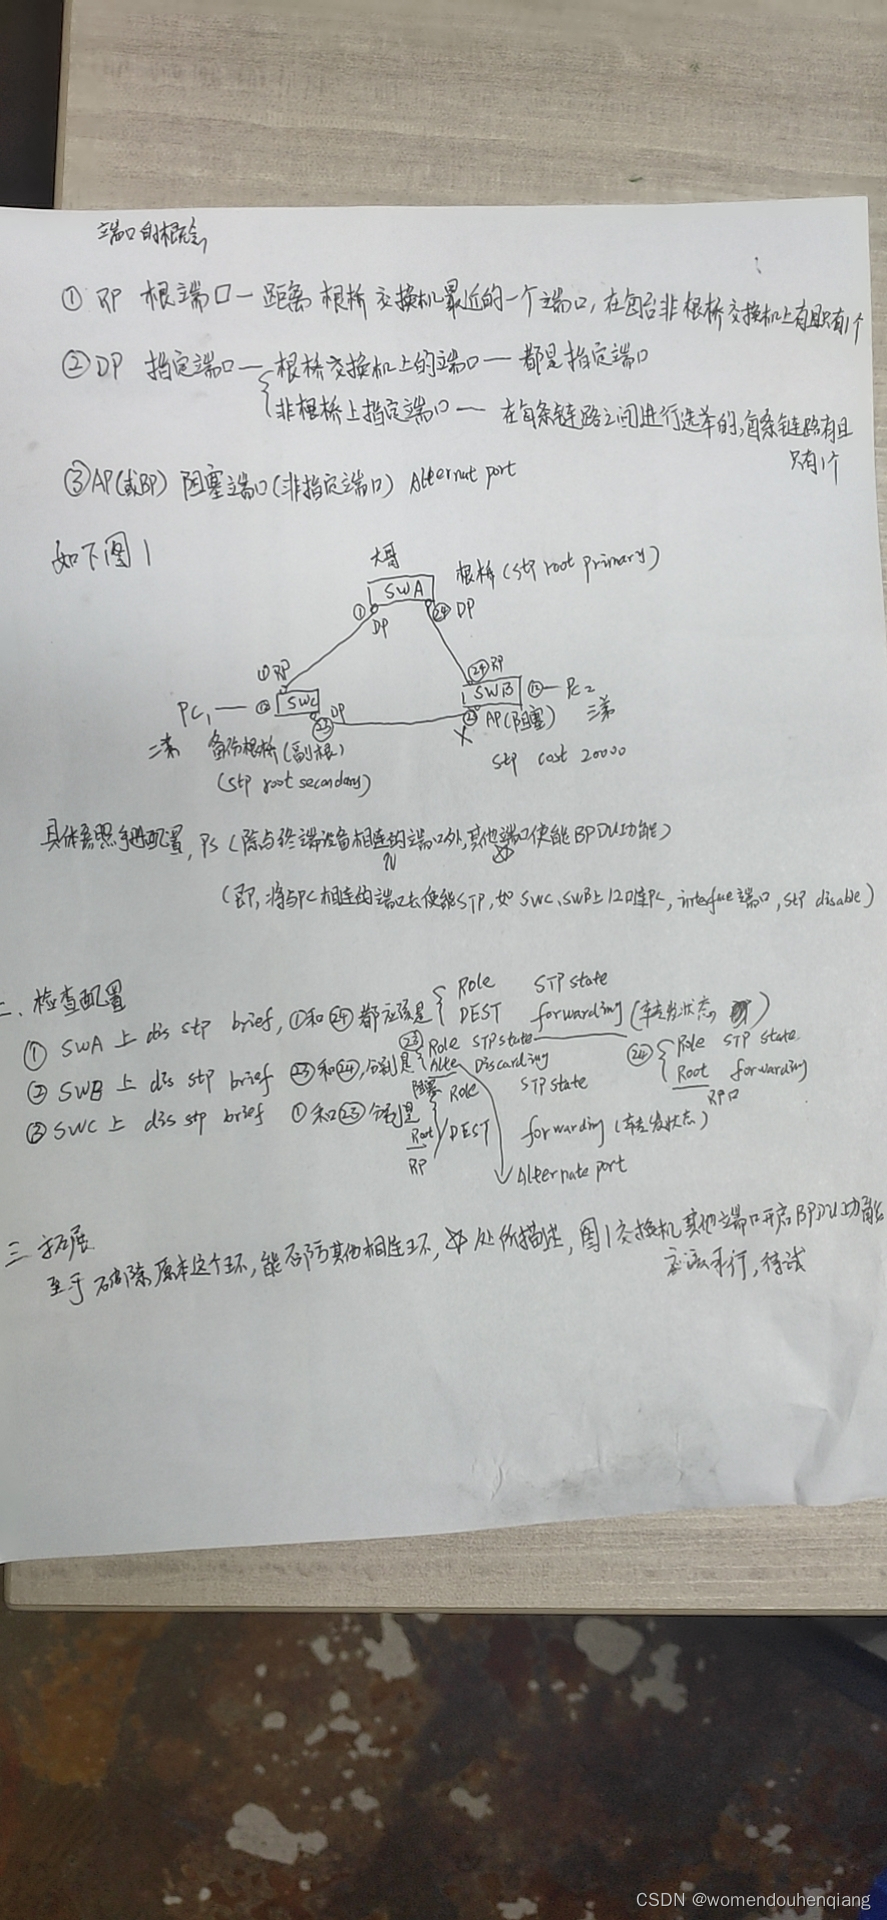 端口的概念
① RP 根端口一距离根桥交换机最近的一个端口,在每台非根桥交换机上有且只有1个
② DP 指定端口一根桥交换机上的端口一都是指定端口
非根桥上指定端口一 在每条链路之间进行选举的,每条链路有且
只有1个
③ AP(或BP) 阻塞端口(非指定端口) Alternat port
如下图1
大哥
根桥(stp root primary)
SWA
① DP
㉔ DP
① RP
㉔ RP
PC1 — ⑫ SWC
SWB ⑫ — PC2
㉓ DP
㉓ AP(阻塞)
X
三弟
二弟 备份根桥(副根)
(stp root secondary)
stp cost 20000
具体参照手册配置, PS(除与终端设备相连的端口外,其他端口使能BPDU功能)
(即,将与PC相连的端口去使能STP,如SWC、SWB上12口连PC, interface端口, stp disable)
二、检查配置
① SWA 上 dis stp brief, ①和㉔都应该是
Role STP state
DEST forwarding(转发状态)
② SWB 上 dis stp brief ㉓和㉔,分别是
㉓ Role STP state
Alte Discarding
阻塞
㉔ Role STP state
Root forwarding
RP口
③ SWC 上 dis stp brief ①和㉓分别是
Role STP state
Root/DEST forwarding(转发状态)
RP
Alternate port
三 拓展
至于破除原本这个环,能否防其他相连环, 处所描述,图1交换机其他端口开启BPDU功能
待试
CSDN @womendouhenqiang